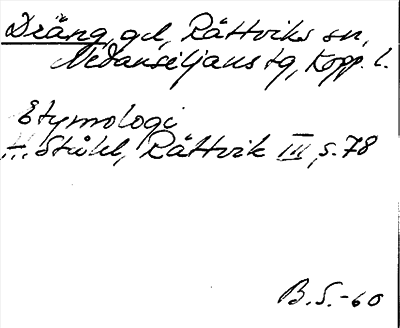 Dräng, gd, Rättviks sn,
Nedansiljans tg, Kopp. l.
Etymologi
H. Ståhl, Rättvik III s. 78
B.S.-60